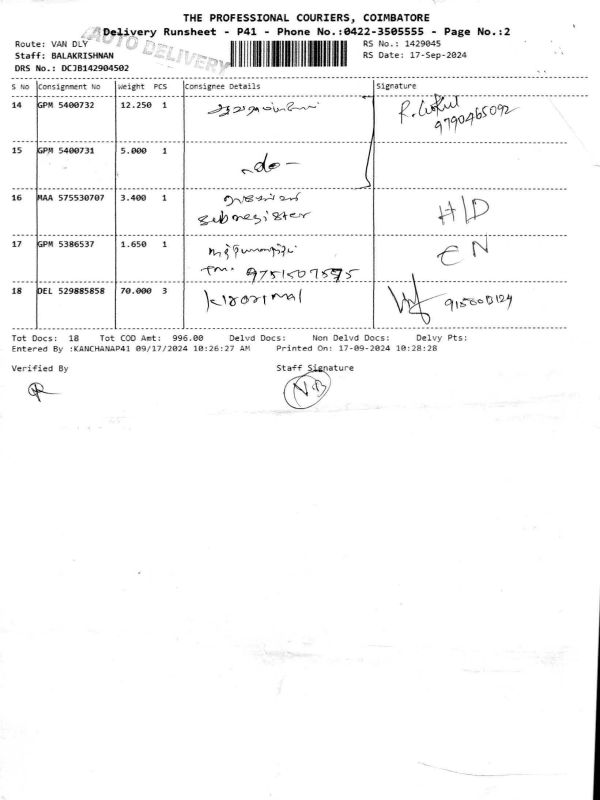 THE PROFESSIONAL COURIERS, COIMBATORE
Delivery Runsheet - P41 - Phone No.:0422-3505555 - Page No.:2
Route: VAN DLY
AUTO DELIVERY
RS No.: 1429045
Staff: BALAKRISHNAN
RS Date: 17-Sep-2024
DRS No.: DCJB142904502
S No Consignment No Weight PCS Consignee Details Signature
14 GPM 5400732 12.250 1 R. Gokul
9790465092
15 GPM 5400731 5.000 1 -do-
16 MAA 575530707 3.400 1
subregister H/D
17 GPM 5386537 1.650 1 EN
9751507575
18 DEL 529885858 70.000 3 kirorimal
Tot Docs: 18 Tot COD Amt: 996.00 Delvd Docs: Non Delvd Docs: Delvy Pts:
Entered By :KANCHANAP41 09/17/2024 10:26:27 AM Printed On: 17-09-2024 10:28:28
Verified By Staff Signature
NB